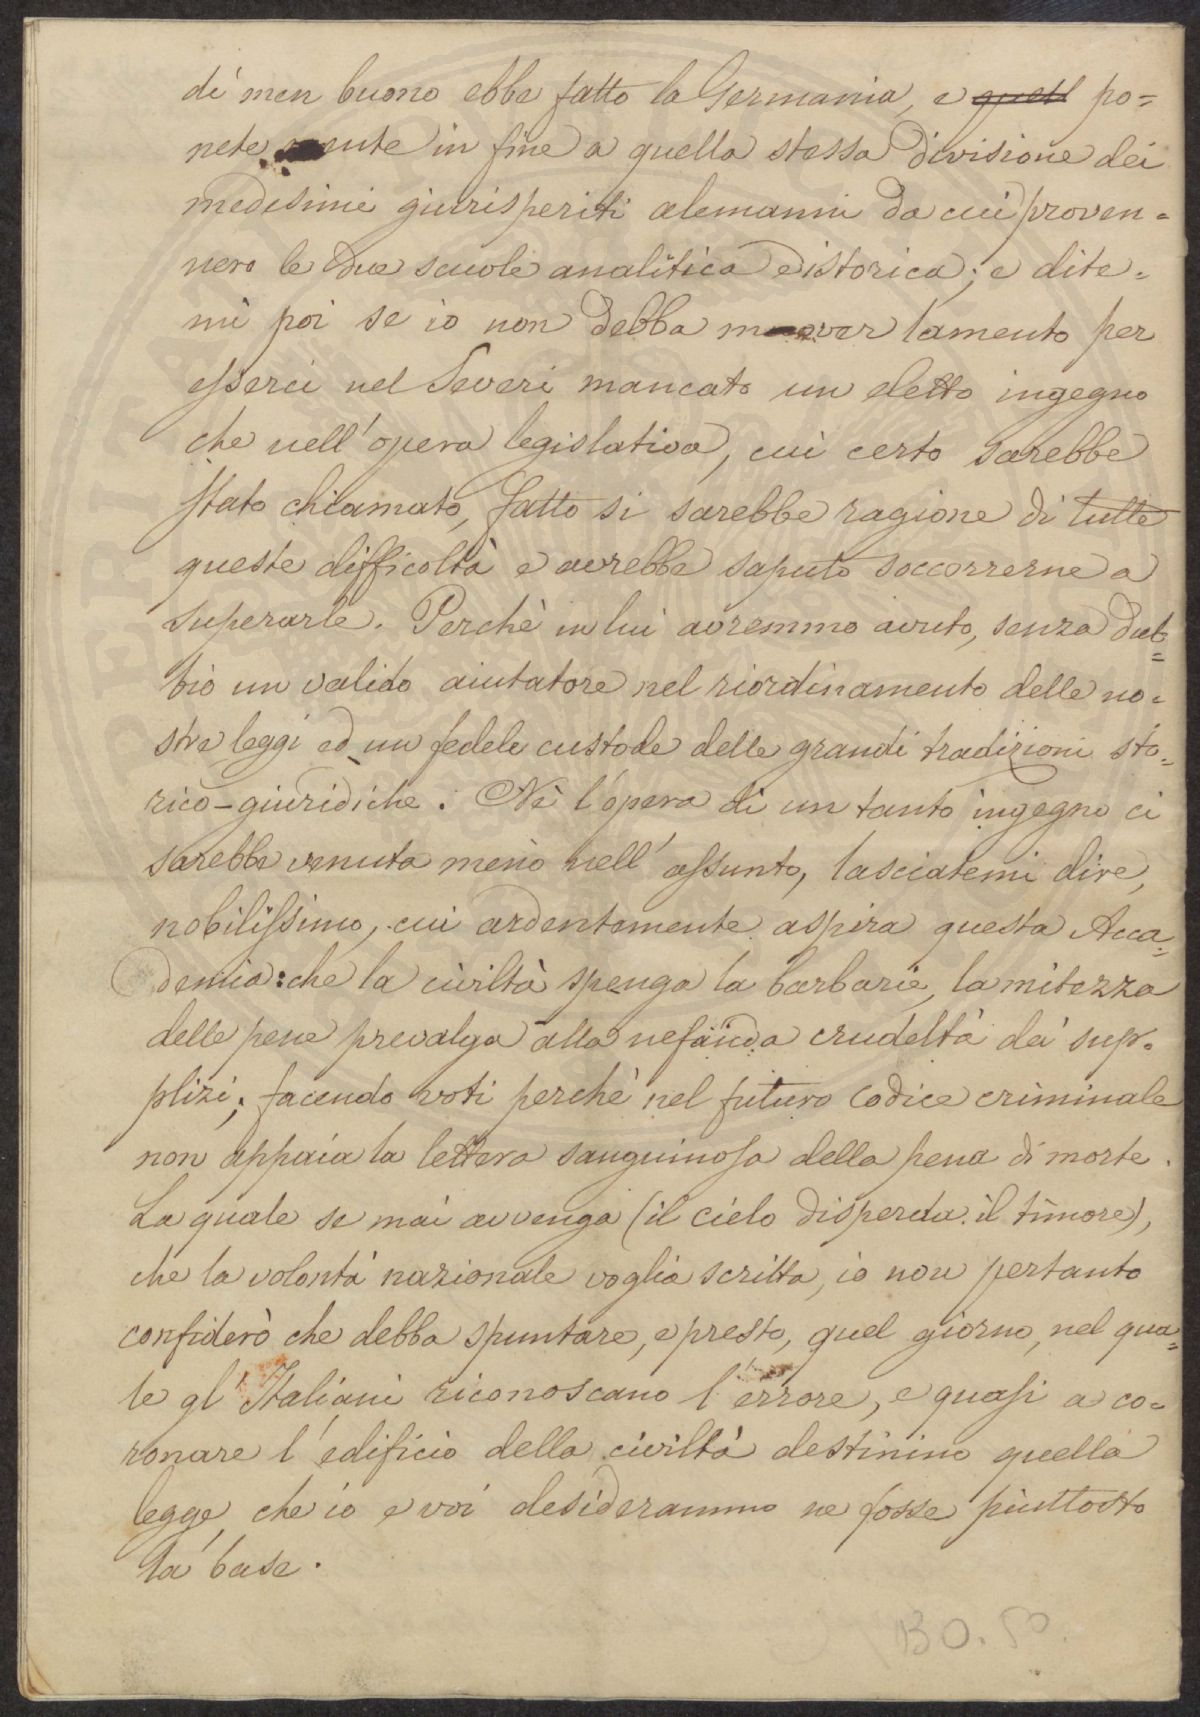 di men buono ebbe fatto la Germania, e quell po=
nete mente in fine a quella stessa divisione dei
medesimi giurisperiti alemanni da cui proven=
nero le due scuole analitica ed istorica; e dite=
mi poi se io non debba muover lamento per
esserci nel Severi mancato un eletto ingegno
che nell'opera legislativa, cui certo sarebbe
stato chiamato, fatto si sarebbe ragione di tutte
queste difficoltà e avrebbe saputo soccorrerne a
superarle. Perchè in lui avremmo avuto, senza dub=
bio un valido aiutatore nel riordinamento delle no=
stre leggi ed un fedele custode delle grandi tradizioni sto=
rico-giuridiche. Nè l'opera di un tanto ingegno ci
sarebbe venuta meno nell'assunto, lasciatemi dire,
nobilissimo, cui ardentemente aspira questa Acca=
demia: che la civiltà spenga la barbarie, la mitezza
delle pene prevalga alla nefanda crudeltà dei sup=
plizi; facendo voti perchè nel futuro codice criminale
non appaia la lettera sanguinosa della pena di morte.
La quale se mai avvenga (il cielo disperda il timore),
che la volontà nazionale voglia scritta, io non pertanto
confiderò che debba spuntare, e presto, quel giorno, nel qua=
le gl'Italiani riconoscano l'errore, e quasi a co=
ronare l'edificio della civiltà destinino quella
legge che io e voi desiderammo ne fosse piuttosto
la base.